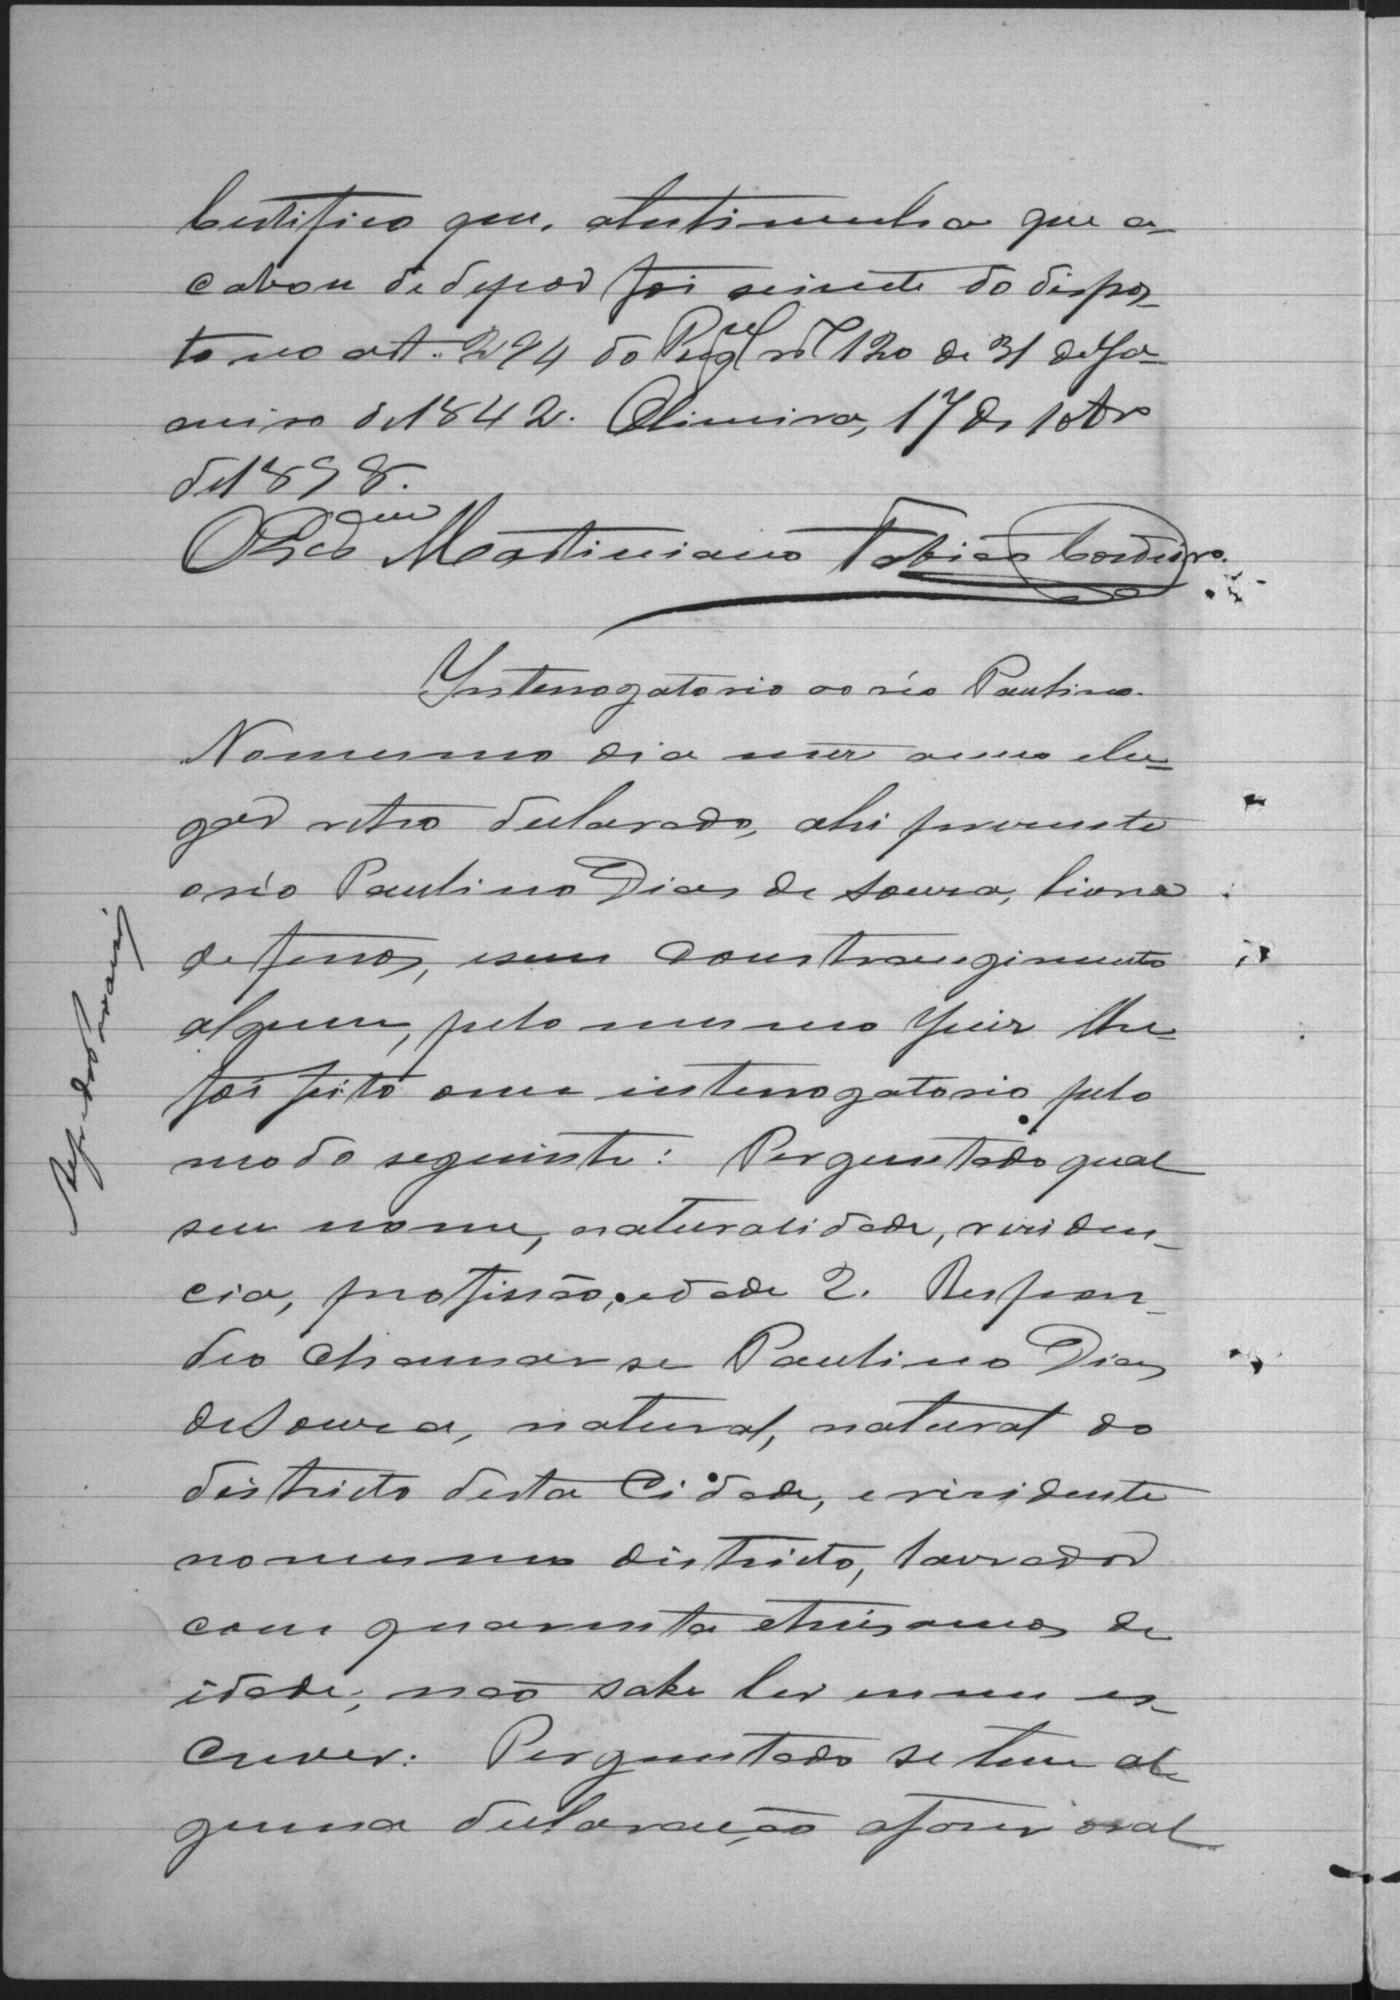 Certifico que, atestimunha que a-
cabou de depor foi sciente do dispos-
to no art. 294 do Regul nº 120 de 31 de Ja-
neiro de 1842. Limeira, 17 de 10bro
de 1898.
O Escdem Martiniano Tobias Cordeiro.
Interrogatorio ao réo Paulino.
No mesmo dia mez anno elu=
gar retro declarado, ahi presente
o réo Paulino Dias de Souza, livre
de ferros, esem constrangimento
algum, pelo mesmo Juiz lhe=
foi feito o seu interrogatorio pelo
modo seguinte: Perguntado qual
seu nome, naturalidade, residen-
cia, profissão, edade ?. Respon-
deo chamar se Paulino Dias
de Souza, natural, natural do
districto desta Cidade, e residente
no mesmo districto, lavrador
com quarenta etrêis annos de
idade; não sabe ler e nem es-
crever: Perguntado se tem al-
guma declaração afazer oral